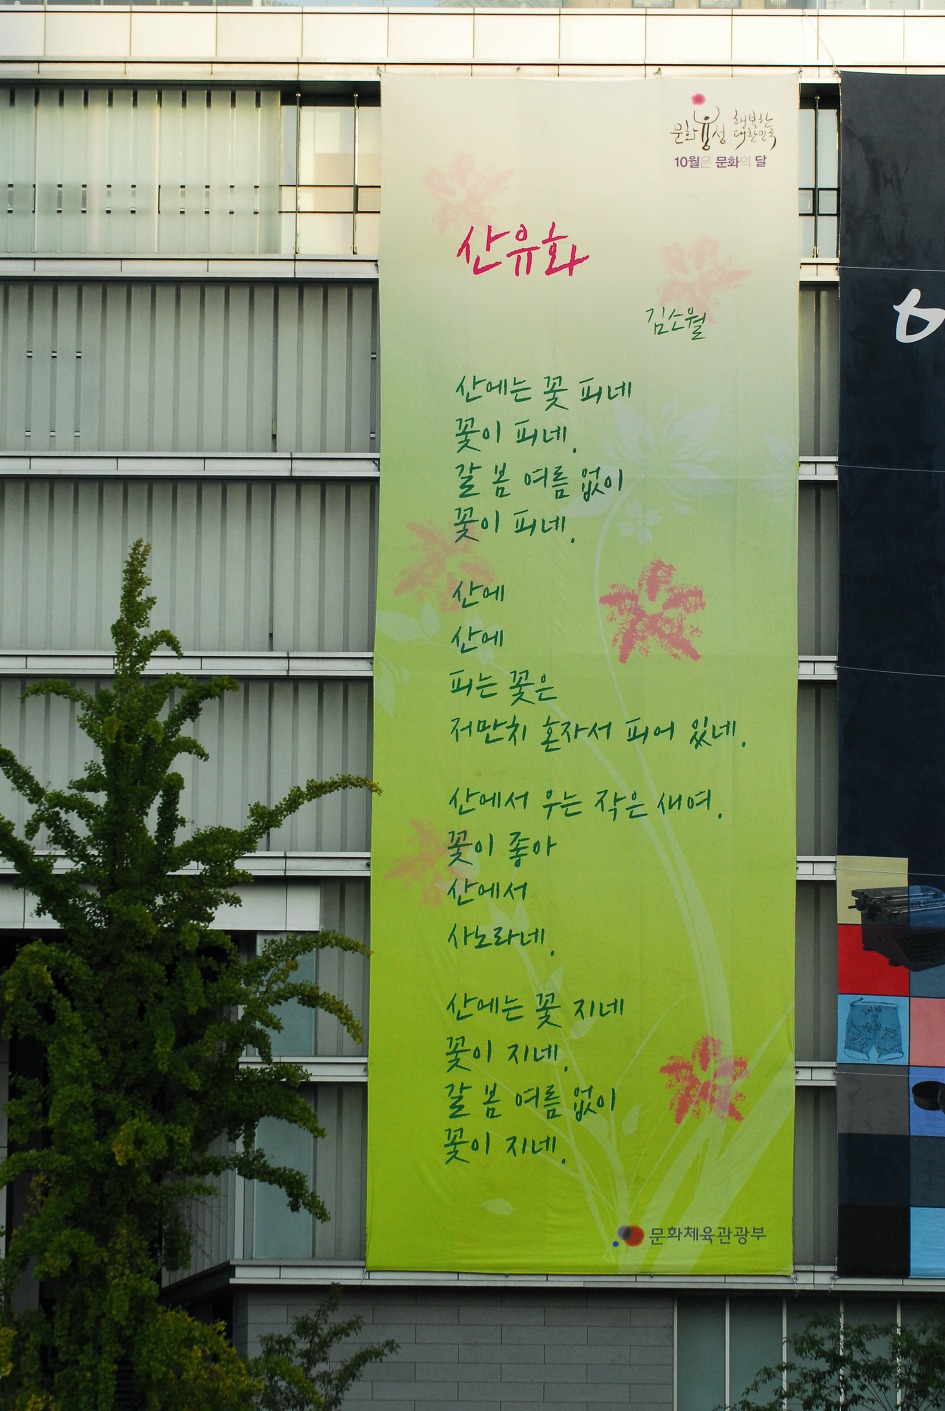 문화융성 행복한 대한민국
10월은 문화의 달
산유화
김소월
산에는 꽃 피네
꽃이 피네.
갈 봄 여름 없이
꽃이 피네.
산에
산에
피는 꽃은
저만치 혼자서 피어 있네.
산에서 우는 작은 새여.
꽃이 좋아
산에서
사노라네.
산에는 꽃 지네
꽃이 지네.
갈 봄 여름 없이
꽃이 지네.
문화체육관광부